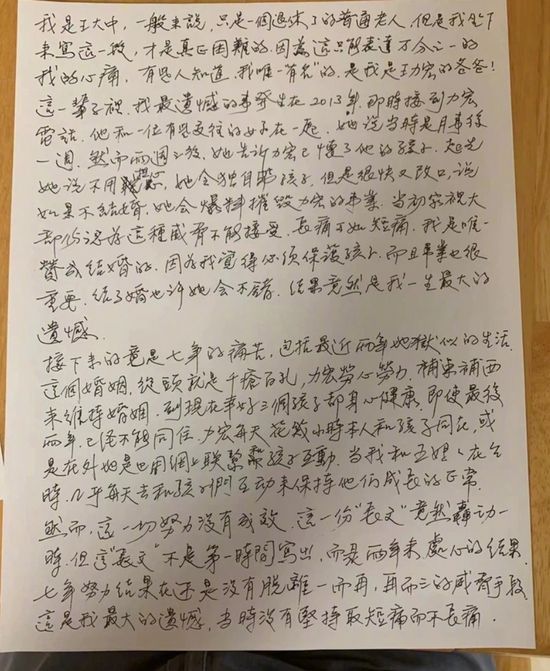 我是王大中，一般来說，只是一個退休了的普通老人，但是我坐下
来寫這一攵，才是真正困難的，因為這只能表達万分之一的
我的心痛，有些人知道，我唯一"有名"的，是我是王力宏的爸爸！
這一輩子裡，我最遺憾的事発生在2013年，那時接到力宏
電話，他和一位有些交往的女子在一起，她说當時是月事後
一週，然而兩週之後，她告訴力宏已懷了他的孩子，起先
她说不用担心，她会独自帶孩子，但是很快又改口，說
如果不结婚，她会爆料摧毀力宏的事業，當初家裡大
都認為這種威脅不能接受，長痛不如短痛，我是唯一
贊成结婚的，因為我覚得必须保護孩子，而且事業也很
重要，结了婚也许她会不錯，结果竟然是我一生最大的
遺憾．
接下来的竟是七年的痛苦，包括最近兩年地獄似的生活．
這個婚姻，從頭就是千瘡百孔，力宏勞心勞力，補東補西
来維持婚姻，到現在幸好三個孩子都身心健康，即使最後
兩年已经不能同住，力宏每天花幾小時本人和孩子同在，或
是在外地也用網上联繫和孩子互動，當我和五姐在台
時，几乎每天去和孩子們互動来保持他们成長的正常．
然而，這一切努力没有成效，這一份"長文"竟然轟动一
時，但這"長文"不是第一時間寫出，而是兩年来處心的结果，
七年努力结果在还是没有脫離一而再，再而三的威脅手段
這是我最大的遺憾，當時没有堅持取短痛而不長痛．